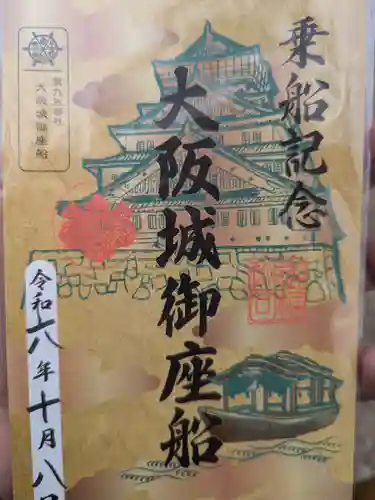 乗船記念
大阪城御座船
大阪城御座船
令和六年十月八日